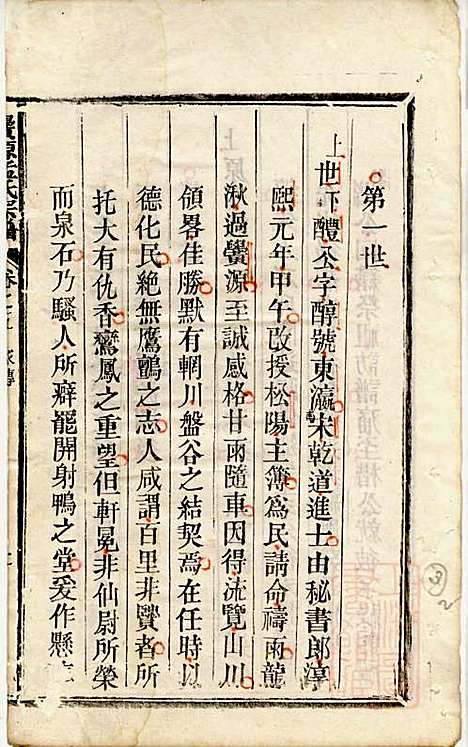 第一世
上世下醴公字醇號東瀛宋乾道進士由秘書郎淳
熙元年甲午改授松陽主簿爲民請命禱雨龍
湫過蠻源至誠感格甘雨隨車因得流覽山川
領畧佳勝默有輞川盤谷之結契焉在任時以
德化民絶無鷹鸇之志人咸謂百里非賢者所
托大有仇香鸞鳳之重望但軒冕非仙尉所榮
而泉石乃騷人所癖罷開射鴨之堂爰作懸
家傳